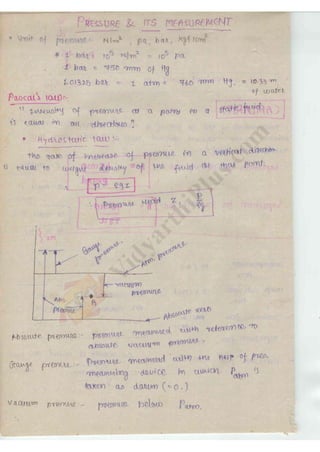 PRESSURE & ITS MEASUREMENT
* Unit of pressure:- N/m², pa, bar, kgf/cm²
* 1 bar = 10⁵ N/m² = 10⁵ pa
1 bar = 750 mm of Hg
1.01325 bar = 1 atm = 760 mm Hg = 10.33 m
of water
Pascal's law:-
"Intensity of pressure at a point in a static fluid
is equal in all directions."
* Hydrostatic law:-
The rate of increase of pressure in a vertical
is equal to weight density of the fluid at that point.
Pressure head
Gauge
pressure.
Atm. pressure
vacuum
pressure
Abs.
pressure
B
Absolute zero
Absolute pressure:- pressure measured with reference to
absolute vacuum pressure.
Gauge pressure:- Pressure measured with the help of
measuring device in which Patm is
taken as datum (=0.)
Vacuum pressure - pressure below Patm.
VidyarthiPlus.com